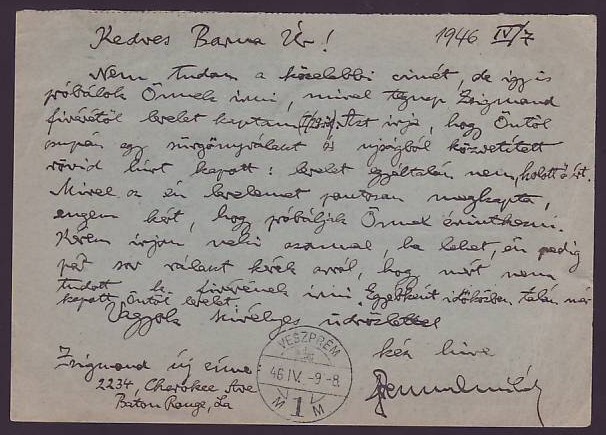 Kedves Barna Úr! 1946 IV/7
Nem tudom a közelebbi címét, de így is
próbálok Önnek írni, mivel tegnap Zsigmond
fivérétől levelet kaptam. Azt írja, hogy Öntől
csupán egy sürgönyválaszt és ujságból közvetített
rövid hírt kapott: levelet egyáltalán nem, holott ő írt.
Mivel az én levelemet pontosan megkapta,
engem kért, hogy próbáljak Önnek érintkezni.
Kérem írjon neki azonnal, ha lehet, én pedig
pár sor választ kérek arról, hogy miért nem
tudott fivérének írni. Egyébként időközben talán már
kapott Öntől levelet.
Vagyok szívélyes üdvözlettel
kész híve
Zsigmond új címe:
2234, Cherokee Ave
Baton Rouge, La
VESZPRÉM
46 IV. -9 -8.
M 1 M